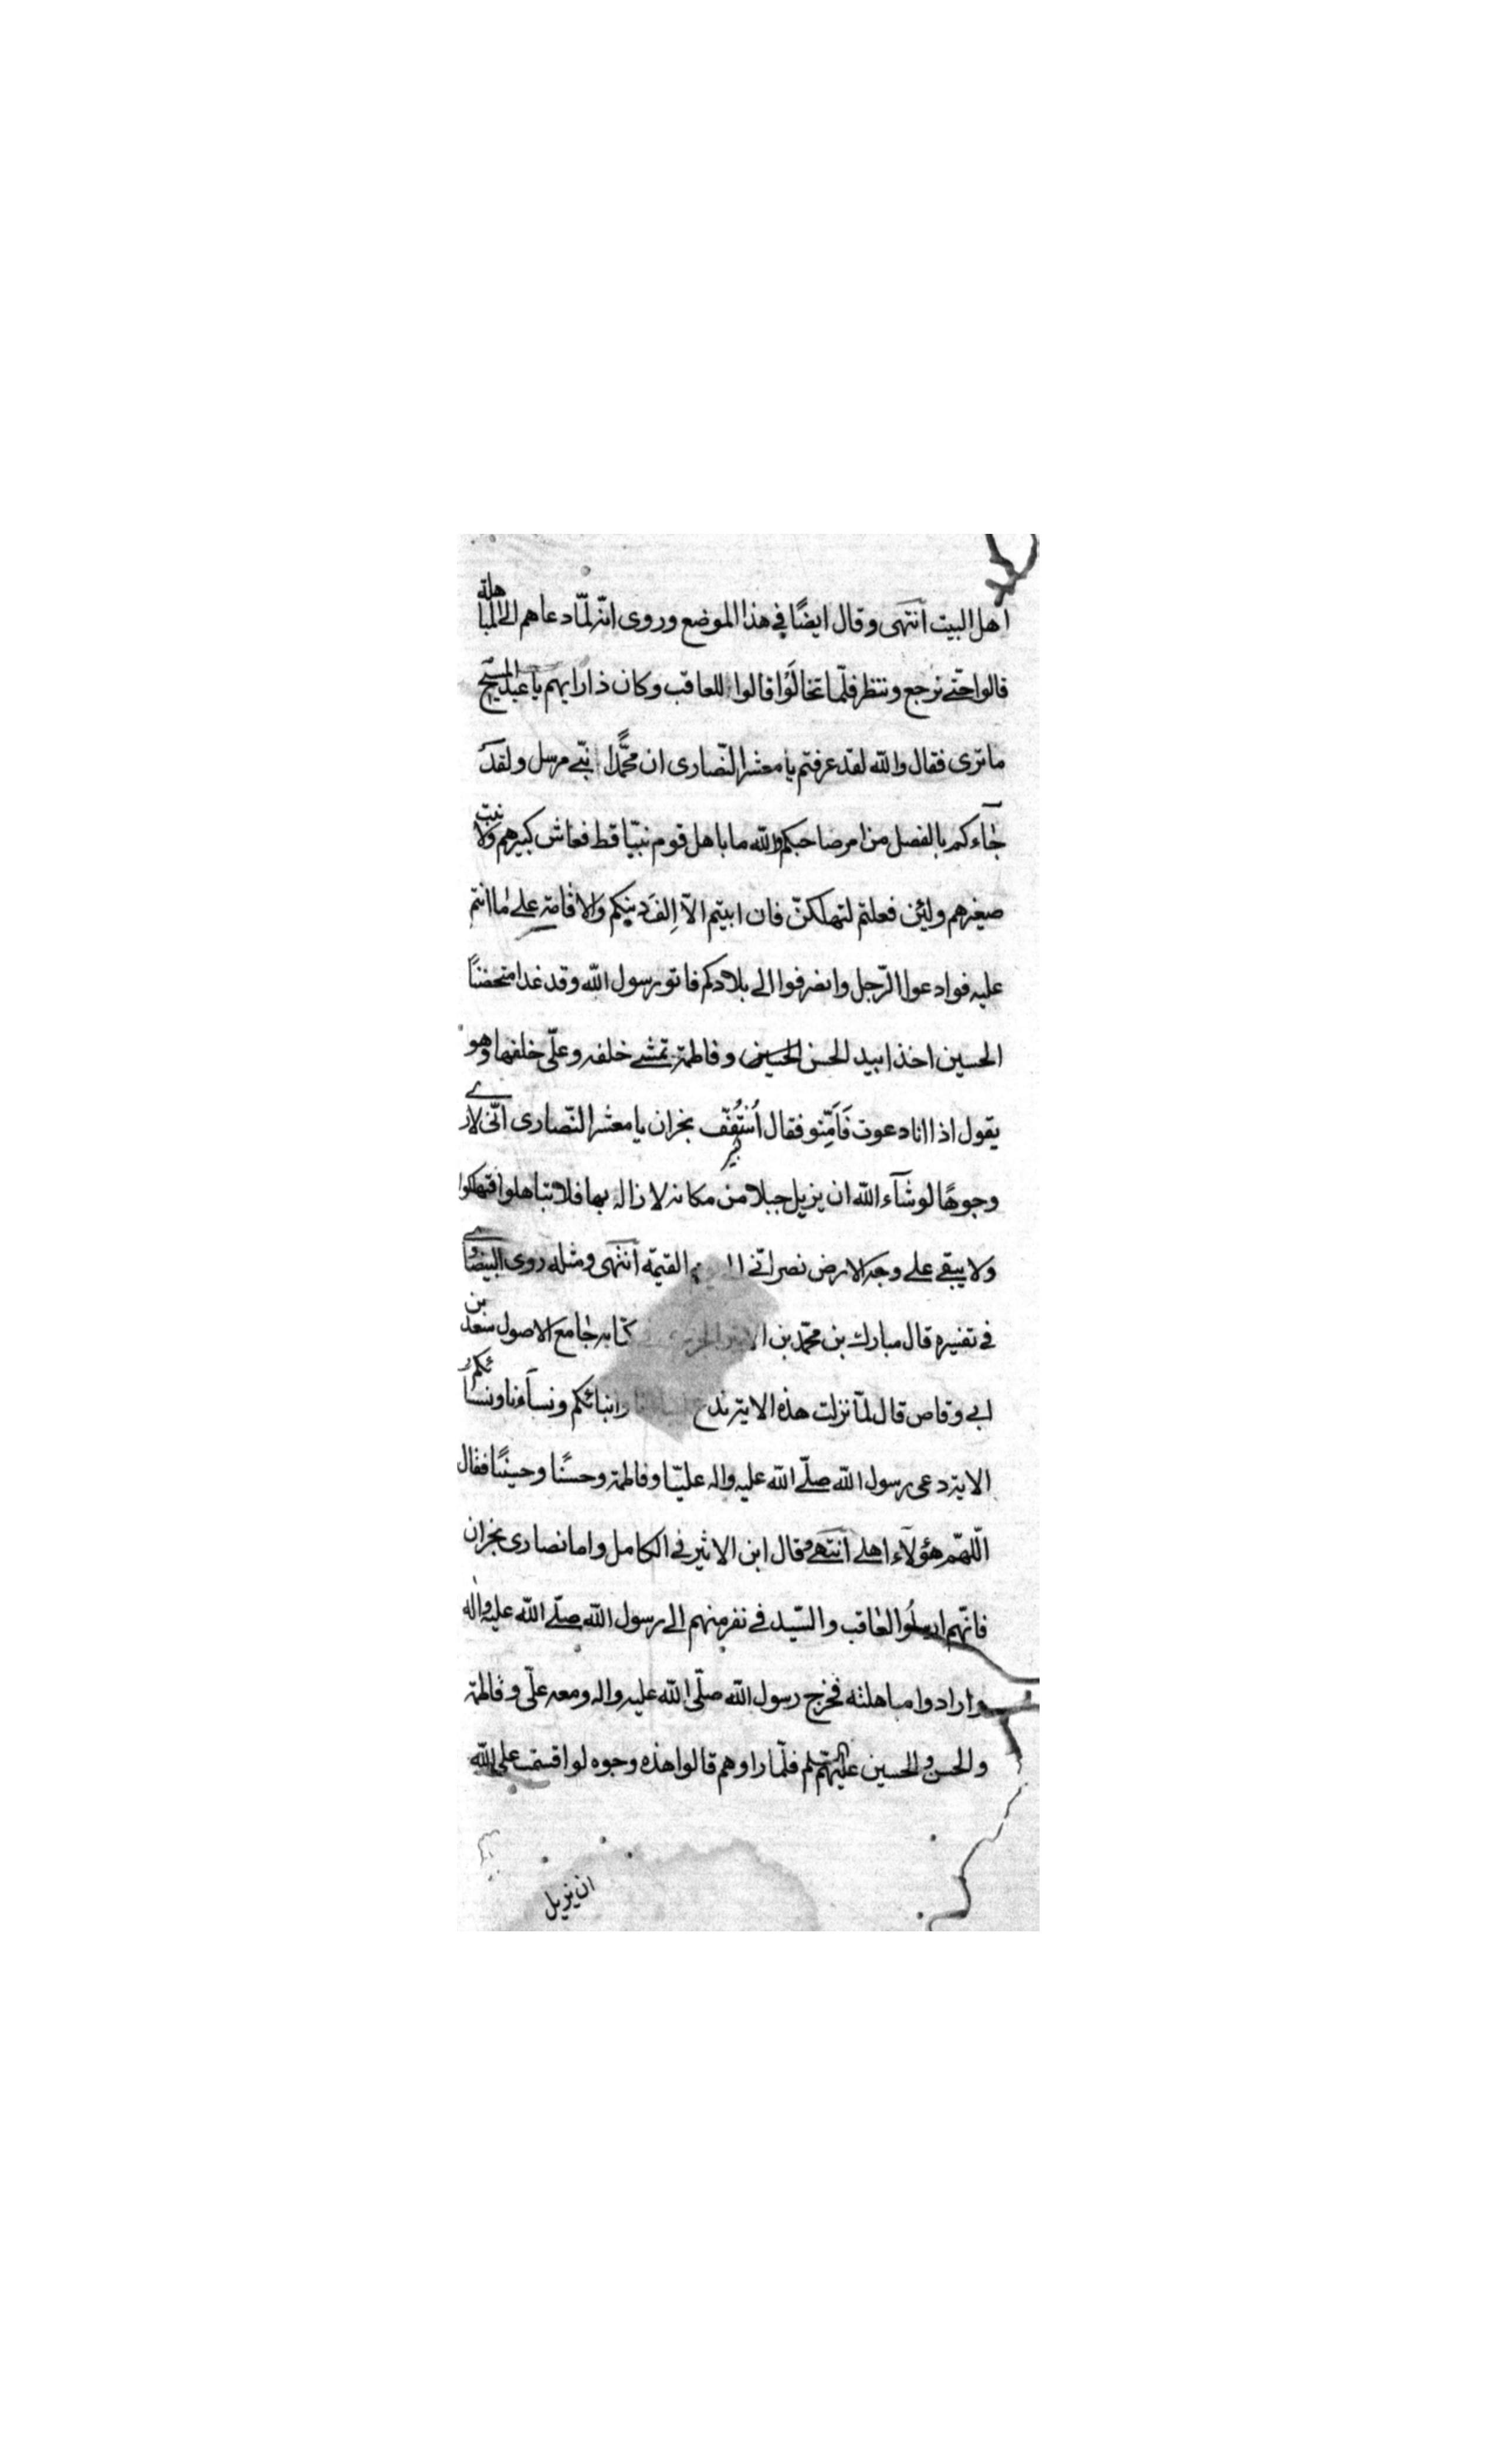 اهل البيت انتهى وقال ايضًا في هذا الموضع وروى انّه لمّا دعاهم الى المباهلة
قالوا حتّى نرجع وننظر فلمّا تخالَوْا قالوا للعاقب وكان ذا رايهم يا عبد المسيح
ما ترى فقال والله لقد عرفتم يا معشر النّصارى ان محمّدًا نبيّ مرسل ولقد
جآءكم بالفصل من امر صاحبكم والله ما باهل قوم نبيّا قط فعاش كبيرهم ولا نبت
صغيرهم ولئن فعلتم لتهلكنّ فان ابيتم الّا اِلفَ دينكم والاقامة على ما انتم
عليه فوادعوا الرّجل وانصرفوا الى بلادكم فاتو رسول الله وقد غدا متحضنًا
الحسين اخذا بيد الحسن الحسين وفاطمة تمشى خلفه وعلّى خلفها وهو
يقول اذا انا دعوت فَاَمِّنو فقال اُسْقُفّ نجران يا معشر النّصارى انّى لارى
وجوهًا لو شآء الله ان يزيل جبلا من مكانه لازاله بها فلا تباهلوا فتهلكوا
ولا يبقى على وجه الارض نصرانّى الى يوم القيمة انتهى ومثله روى البيضاوى
في تفسيره قال مبارك بن محمّد بن الاثير الجزرى في كتابه جامع الاصول سعد بن
ابى وقاص قال لمّا نزلت هذه الاية ندع ابنائنا وابنائكم ونسآءنا ونسائكم
الاية دعى رسول الله صلّى الله عليه واله عليّا وفاطمة وحسنًا وحسينًا فقال
اللّهمّ هؤلآء اهلى انتهى وقال ابن الاثير في الكامل واما نصارى نجران
فانّهم ارسلُوا العاقب والسّيد في نفر منهم الى رسول الله صلّى الله عليه واله
وارادوا مباهلته فخرج رسول الله صلّى الله عليه واله ومعه علّى وفاطمة
والحسن والحسين عليهم السّلم فلمّا راوهم قالوا هذه وجوه لو اقسمت على الله
ان يزيل